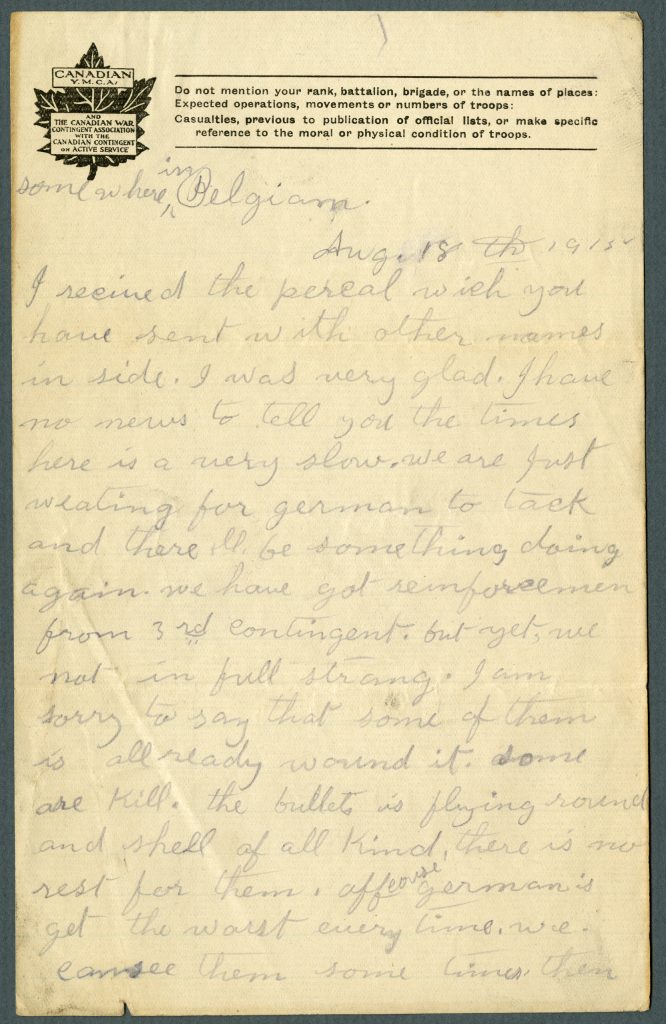 CANADIAN
Y.M.C.A.
AND
THE CANADIAN WAR
CONTINGENT ASSOCIATION
WITH THE
CANADIAN CONTINGENT
ON ACTIVE SERVICE
Do not mention your rank, battalion, brigade, or the names of places:
Expected operations, movements or numbers of troops:
Casualties, previous to publication of official lists, or make specific
reference to the moral or physical condition of troops.
somewhere in Belgiam.
Aug. 18 th 1915
I recived the percal wich you
have sent with other names
in side. I was very glad. I have
no news to tell you the times
here is a very slow. we are Just
weating for german to tack
and there ll be something doing
again. we have got reinforcemen
from 3 rd contingent. but yet, we
not in full strang. I am
sorry to say that some of them
is allready wound it. some
are Kill. the bullets is flying round
and shell of all Kind, there is no
rest for them. off course german is
get the worst every time. we.
can see them some times. then